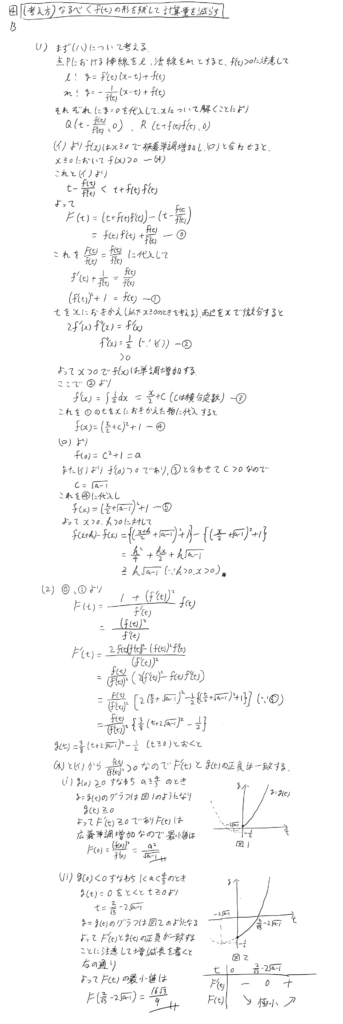 (考え方) なるべく f(t) の形を残して計算量を減らす
(1) まず(ハ)について考える.
点Pにおける接線をl, 法線をmとすると, f'(t)>0に注意して
l: y = f'(t)(x-t)+f(t)
m: y = -1/f'(t) (x-t)+f(t)
それぞれに y=0を代入して, xについて解くことにより
Q(t - f(t)/f'(t), 0), R(t+f(t)f'(t), 0)
x≧0において f(x)>0 
これと(イ)より
t - f(t)/f'(t) < t+f(t)f'(t)
よって
F(t) = (t+f(t)f'(t)) - (t - f(t)/f'(t))
= f(t)f'(t) + f(t)/f'(t) — ⓪
これを F(t)/f(t) = f(t)/f'(t) に代入して
f'(t) + 1/f'(t) = f(t)/f'(t)
(f'(t))² + 1 = f(t) — ①
2f'(x)f''(x) = f'(x)
f''(x) = 1/2 (∵(イ)) — ②
>0
よって x>0で f'(x)は単調増加する.
ここで②より
f'(x) = ∫1/2 dx = x/2 + C (Cは積分定数) — ③
これを①のtをxにおきかえた物に代入すると
f(x) = (x/2 + C)² + 1 — ④
(ロ)より
f(0) = C² + 1 = a
また(イ)より f'(0)>0であり, ③と合わせて C>0 なので
C = √(a-1)
これを④に代入し
f(x) = (x/2 + √(a-1))² + 1 — ⑤
よって x>0, h>0に対して
f(x+h) - f(x) = {((x+h)/2 + √(a-1))² + 1} - {(x/2 + √(a-1))² + 1}
= h²/4 + hx/2 + h√(a-1)
≧ h√(a-1) (∵h>0, x>0)
(2) ⓪, ①より
F(t) = (1 + (f'(t))²)/f'(t) f(t)
= (f(t))²/f'(t)
= f(t)/(f'(t))² (2(f'(t))² - f(t)f''(t))
= f(t)/(f'(t))² [2(t/2 + √(a-1))² - 1/2{(t/2 + √(a-1))² + 1}]
= f(t)/(f'(t))² {3/8 (t+2√(a-1))² - 1/2}
g(t) = 3/8 (t+2√(a-1))² - 1/2 (t≧0)とおくと
f(t)/(f'(t))² > 0 なので F'(t)とg(t)の正負は一致する.
(i) g(0)≧0 すなわち a≧4/3 のとき
y=g(t)のグラフは図1のようになり
g(t)≧0
よって F'(t)≧0であり F(t)は
広義単調増加なので最小値は
F(0) = (f(0))²/f'(0) = a²/√(a-1)
y
y=g(t)
-2√(a-1)
-1/2
t
図1
(ii) g(0)<0 すなわち 1<a<4/3 のとき
g(t)=0をとくと t≧0より
t = 2/√3 - 2√(a-1)
y=g(t)のグラフは図2のようになる
よって F'(t)とg(t)の正負が一致する
ことに注意して増減表を書くと
右の通り
よって F(t)の最小値は
F(2/√3 - 2√(a-1)) = 16√3/9
y
-2√(a-1)
2/√3 - 2√(a-1)
t
図2
t 0 2/√3-2√(a-1)
F'(t) - 0 +
F(t) ↘ 極小 ↗